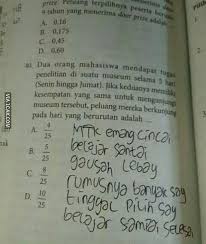 a tahun yang menerima door prize adalah...
A. 0,16
B. 0,175
C. 0,45
D. 0,60
Dua orang mahasiswa mendapat tugas
penelitian di suatu museum selama 5 hari
(Senin hingga Jumat). Jika keduanya memiliki
kesempatan yang sama untuk mengunjungi
museum tersebut, peluang mereka berkunjung
pada hari yang berurutan adalah ....
A. 4/25
B. 5/25
C. 8/25
D. 10/25
MTK emang cincai
belajar santai
gausah lebay
rumusnya banyak say
tinggal pilih say
belajar sampai selesai